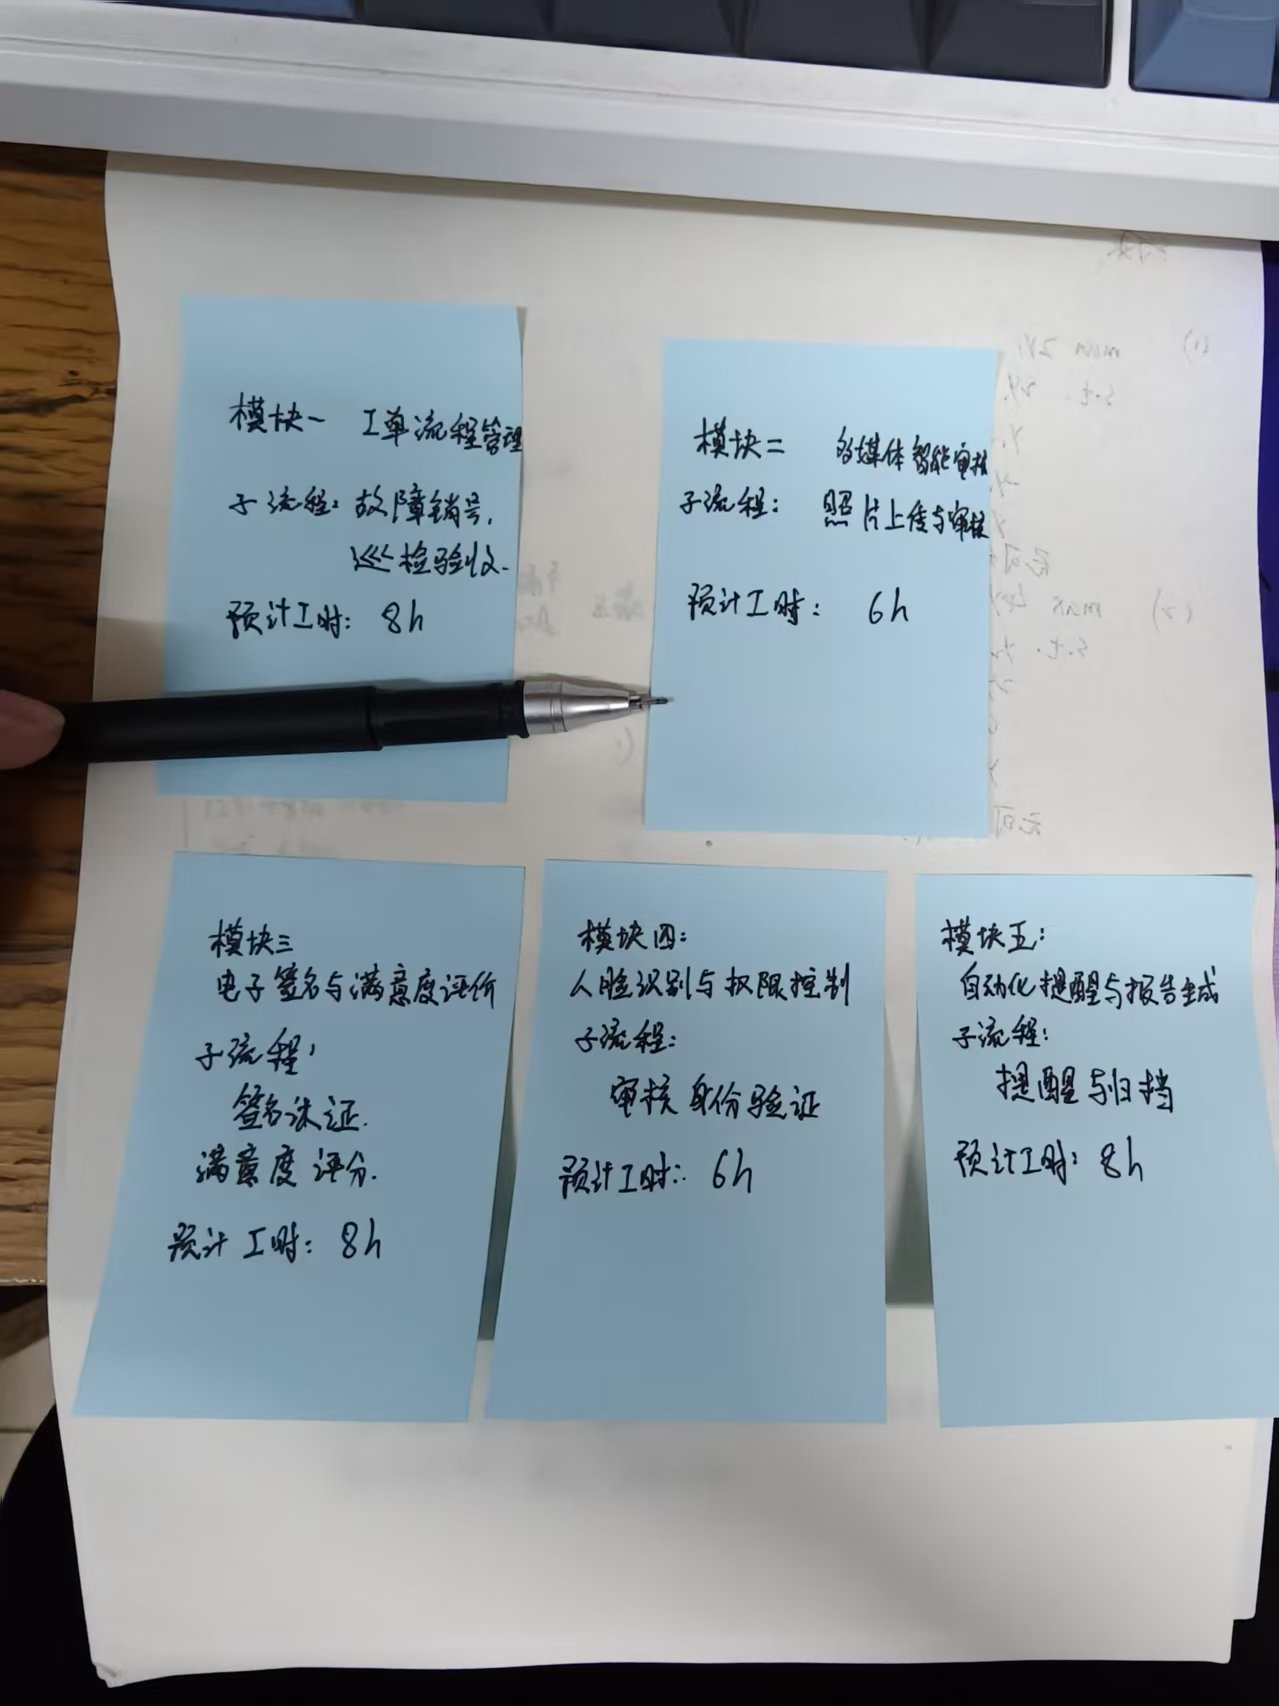 模块一 工单流程管理
子流程：故障销号，
巡检验收.
预计工时：8h
模块二 多媒体智能审核
子流程：照片上传与审核
预计工时：6h
模块三
电子签名与满意度评价
子流程：
签名认证.
满意度评分.
预计工时：8h
模块四：
人脸识别与权限控制
子流程：
审核身份验证
预计工时：6h
模块五：
自动化提醒与报告生成
子流程：
提醒与归档
预计工时：8h